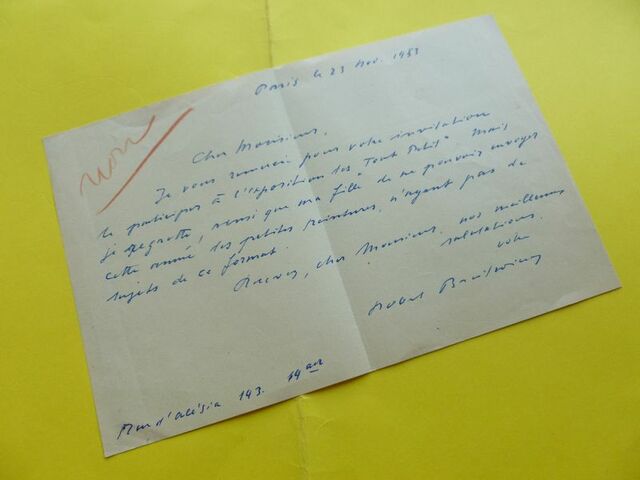 Paris le 23 Nov. 1953
Cher Monsieur,
Je vous remercie pour votre invitation
de participer à l'exposition les "Tout Petits". Mais
je regrette, ainsi que ma fille de ne pouvoir envoyer
cette année des petites peintures, n'ayant pas de
sujets de ce format.
Recevez, cher Monsieur, nos meilleures
salutations.
votre
Rue d'Alésia 143. 14